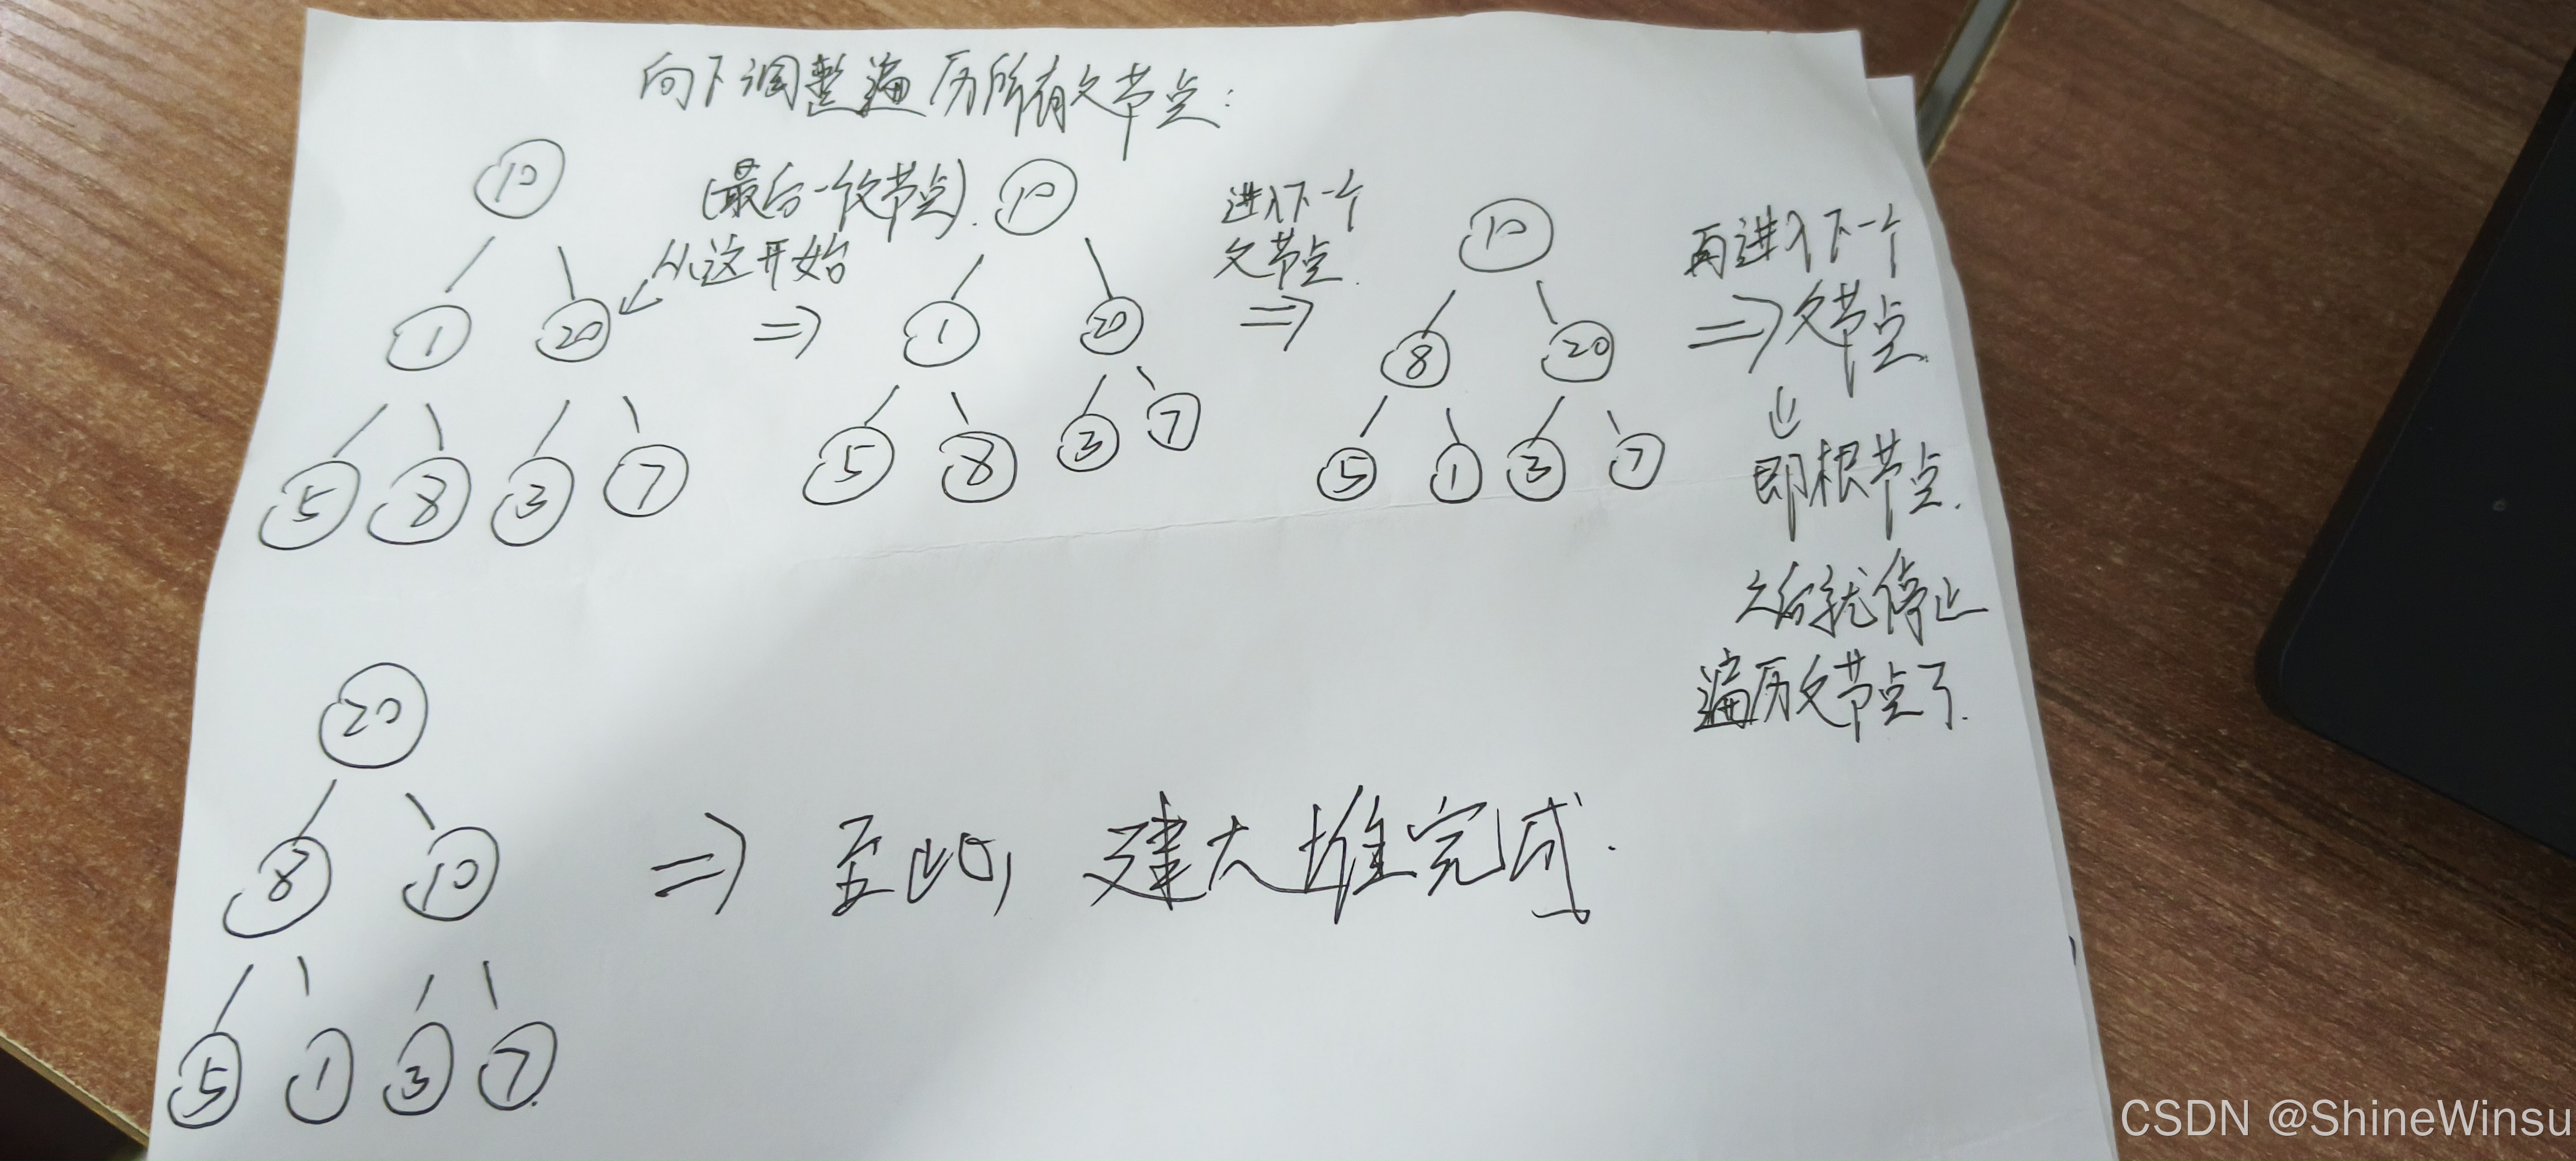 向下调整遍历所有父节点:
10
(最后一个父节点).
从这开始
1 20
5 8 3 7
⇒
10
1 20
5 8 3 7
进入下一个
父节点.
⇒
10
8 20
5 1 3 7
再进入下一个
⇒ 父节点.
⇓
即根节点.
之后就停止
遍历父节点了.
20
8 10
5 1 3 7
⇒ 至此, 建大堆完成.
CSDN @ShineWinsu